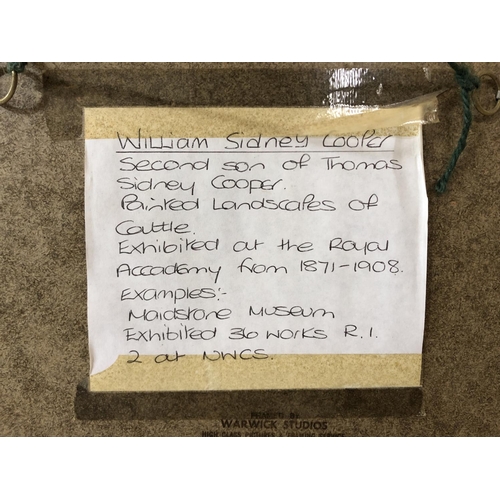 William Sidney Cooper
Second son of Thomas
Sidney Cooper.
Painted Landscapes of
Cattle.
Exhibited at the Royal
Accademy from 1871-1908.
Examples:-
Maidstone Museum
Exhibited 36 works R.I.
2 at NWCS.
WARWICK STUDIOS
HIGH CLASS PICTURES & FRAMING SERVICE